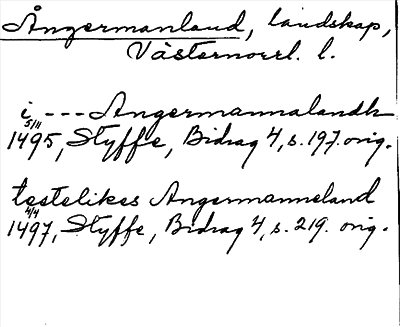 Ångermanland, landskap,
Västernorrl. l.
i --- Angermannalandh
5/11
1495, Styffe, Bidrag 4, s. 197. orig.
testelikes Angermanneland
4/4
1497, Styffe, Bidrag 4, s. 219. orig.